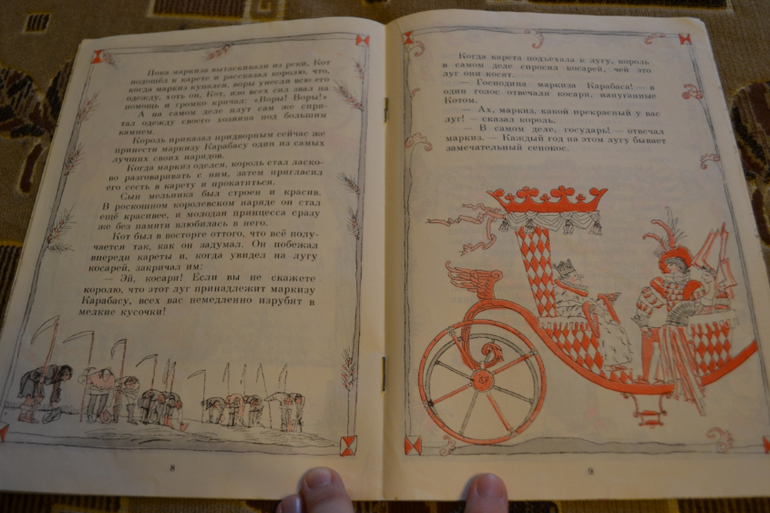 Пока маркиза вытаскивали из реки, Кот
подошёл к карете и рассказал королю, что,
когда маркиз купался, воры унесли всю его
одежду, хоть он, Кот, изо всех сил звал на
помощь и громко кричал: «Воры! Воры!»
А на самом деле плут сам же спря-
тал одежду своего хозяина под большим
камнем.
Король приказал придворным сейчас же
принести маркизу Карабасу один из самых
лучших своих нарядов.
Когда маркиз оделся, король стал ласко-
во разговаривать с ним, затем пригласил
его сесть в карету и прокатиться.
Сын мельника был строен и красив.
В роскошном королевском наряде он стал
ещё красивее, и молодая принцесса сразу
же без памяти влюбилась в него.
Кот был в восторге оттого, что всё полу-
чается так, как он задумал. Он побежал
впереди кареты и, когда увидел на лугу
косарей, закричал им:
— Эй, косари! Если вы не скажете
королю, что этот луг принадлежит маркизу
Карабасу, всех вас немедленно изрубит в
мелкие кусочки!
8
Когда карета подъехала к лугу, король
в самом деле спросил косарей, чей это
луг они косят.
— Господина маркиза Карабаса! — в
один голос отвечали косари, напуганные
Котом.
— Ах, маркиз, какой прекрасный у вас
луг! — сказал король.
— В самом деле, государь! — отвечал
маркиз. — Каждый год на этом лугу бывает
замечательный сенокос.
9